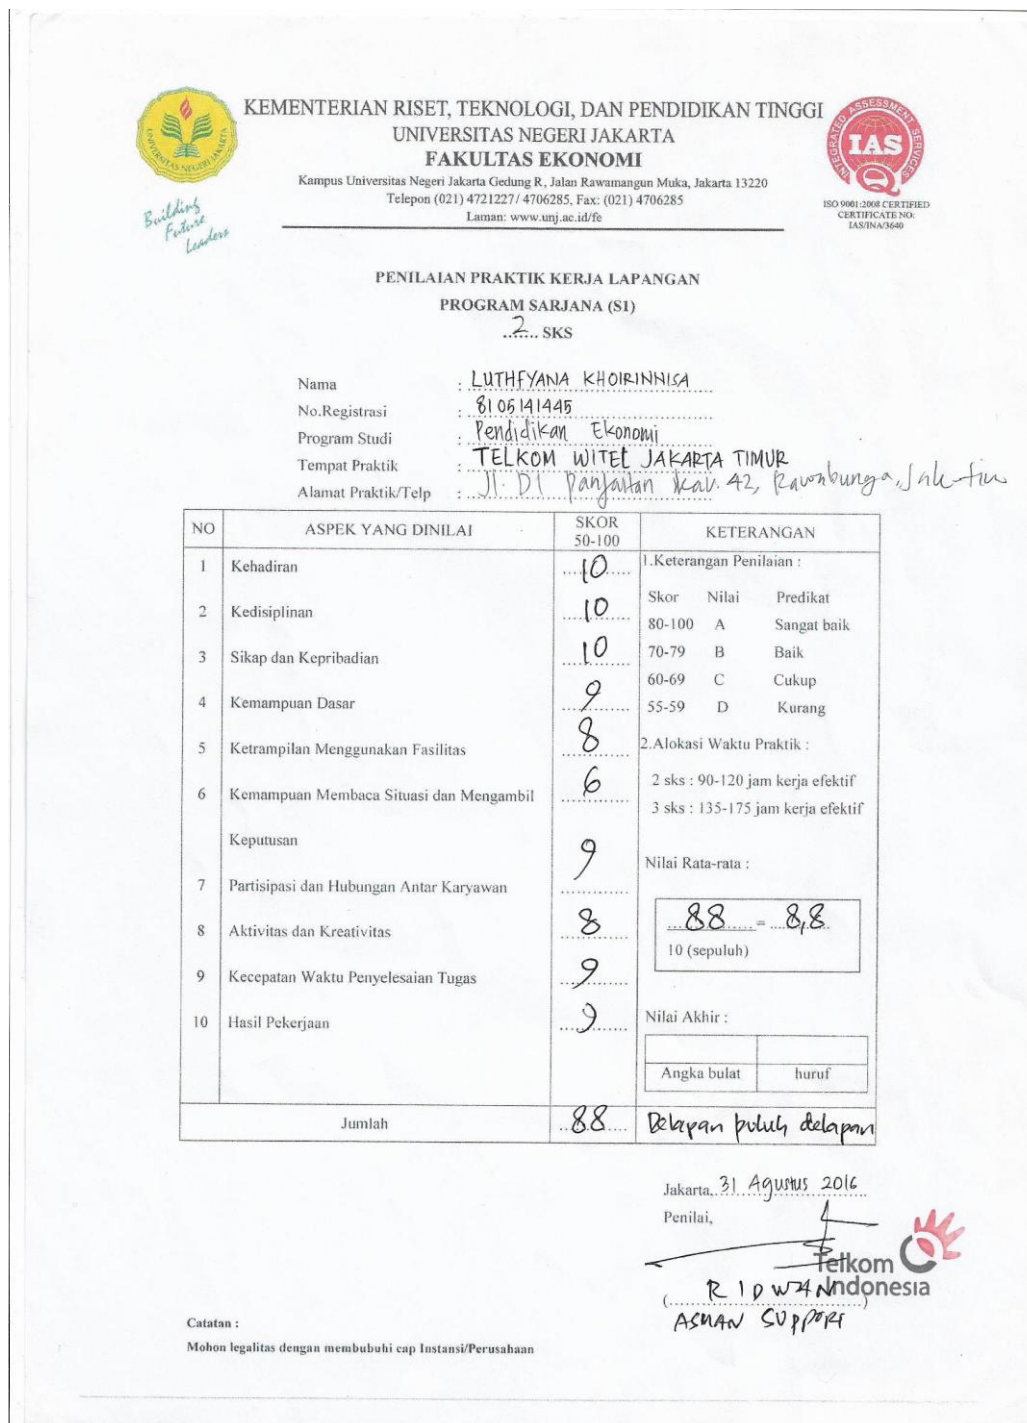 KEMENTERIAN RISET, TEKNOLOGI, DAN PENDIDIKAN TINGGI
UNIVERSITAS NEGERI JAKARTA
FAKULTAS EKONOMI
Kampus Universitas Negeri Jakarta Gedung R, Jalan Rawamangun Muka, Jakarta 13220
Telepon (021) 4721227/ 4706285, Fax: (021) 4706285
Laman: www.unj.ac.id/fe
UNIVERSITAS NEGERI JAKARTA
Building
Future
Leaders
INTEGRATED ASSESSMENT SERVICES
IAS
ISO 9001:2008 CERTIFIED
CERTIFICATE NO:
IAS/INA/3640
PENILAIAN PRAKTIK KERJA LAPANGAN
PROGRAM SARJANA (S1)
2 SKS
Nama : LUTHFYANA KHOIRINNISA
No.Registrasi : 8105141445
Program Studi : Pendidikan Ekonomi
Tempat Praktik : TELKOM WITEL JAKARTA TIMUR
Alamat Praktik/Telp : Jl. DI Panjaitan Kav. 42, Rawabunga, Jak-Tim
NO ASPEK YANG DINILAI SKOR 50-100 KETERANGAN
1 Kehadiran 10
2 Kedisiplinan 10
3 Sikap dan Kepribadian 10
4 Kemampuan Dasar 9
5 Ketrampilan Menggunakan Fasilitas 8
6 Kemampuan Membaca Situasi dan Mengambil 6
Keputusan
7 Partisipasi dan Hubungan Antar Karyawan 9
8 Aktivitas dan Kreativitas 8
9 Kecepatan Waktu Penyelesaian Tugas 9
10 Hasil Pekerjaan 9
1.Keterangan Penilaian :
Skor Nilai Predikat
80-100 A Sangat baik
70-79 B Baik
60-69 C Cukup
55-59 D Kurang
2.Alokasi Waktu Praktik :
2 sks : 90-120 jam kerja efektif
3 sks : 135-175 jam kerja efektif
Nilai Rata-rata :
88 = 8,8
10 (sepuluh)
Nilai Akhir :
Angka bulat huruf
Jumlah 88 Delapan puluh delapan
Jakarta, 31 Agustus 2016
Penilai,
Telkom
Indonesia
(RIDWAN)
ASMAN SUPPORT
Catatan :
Mohon legalitas dengan membubuhi cap Instansi/Perusahaan